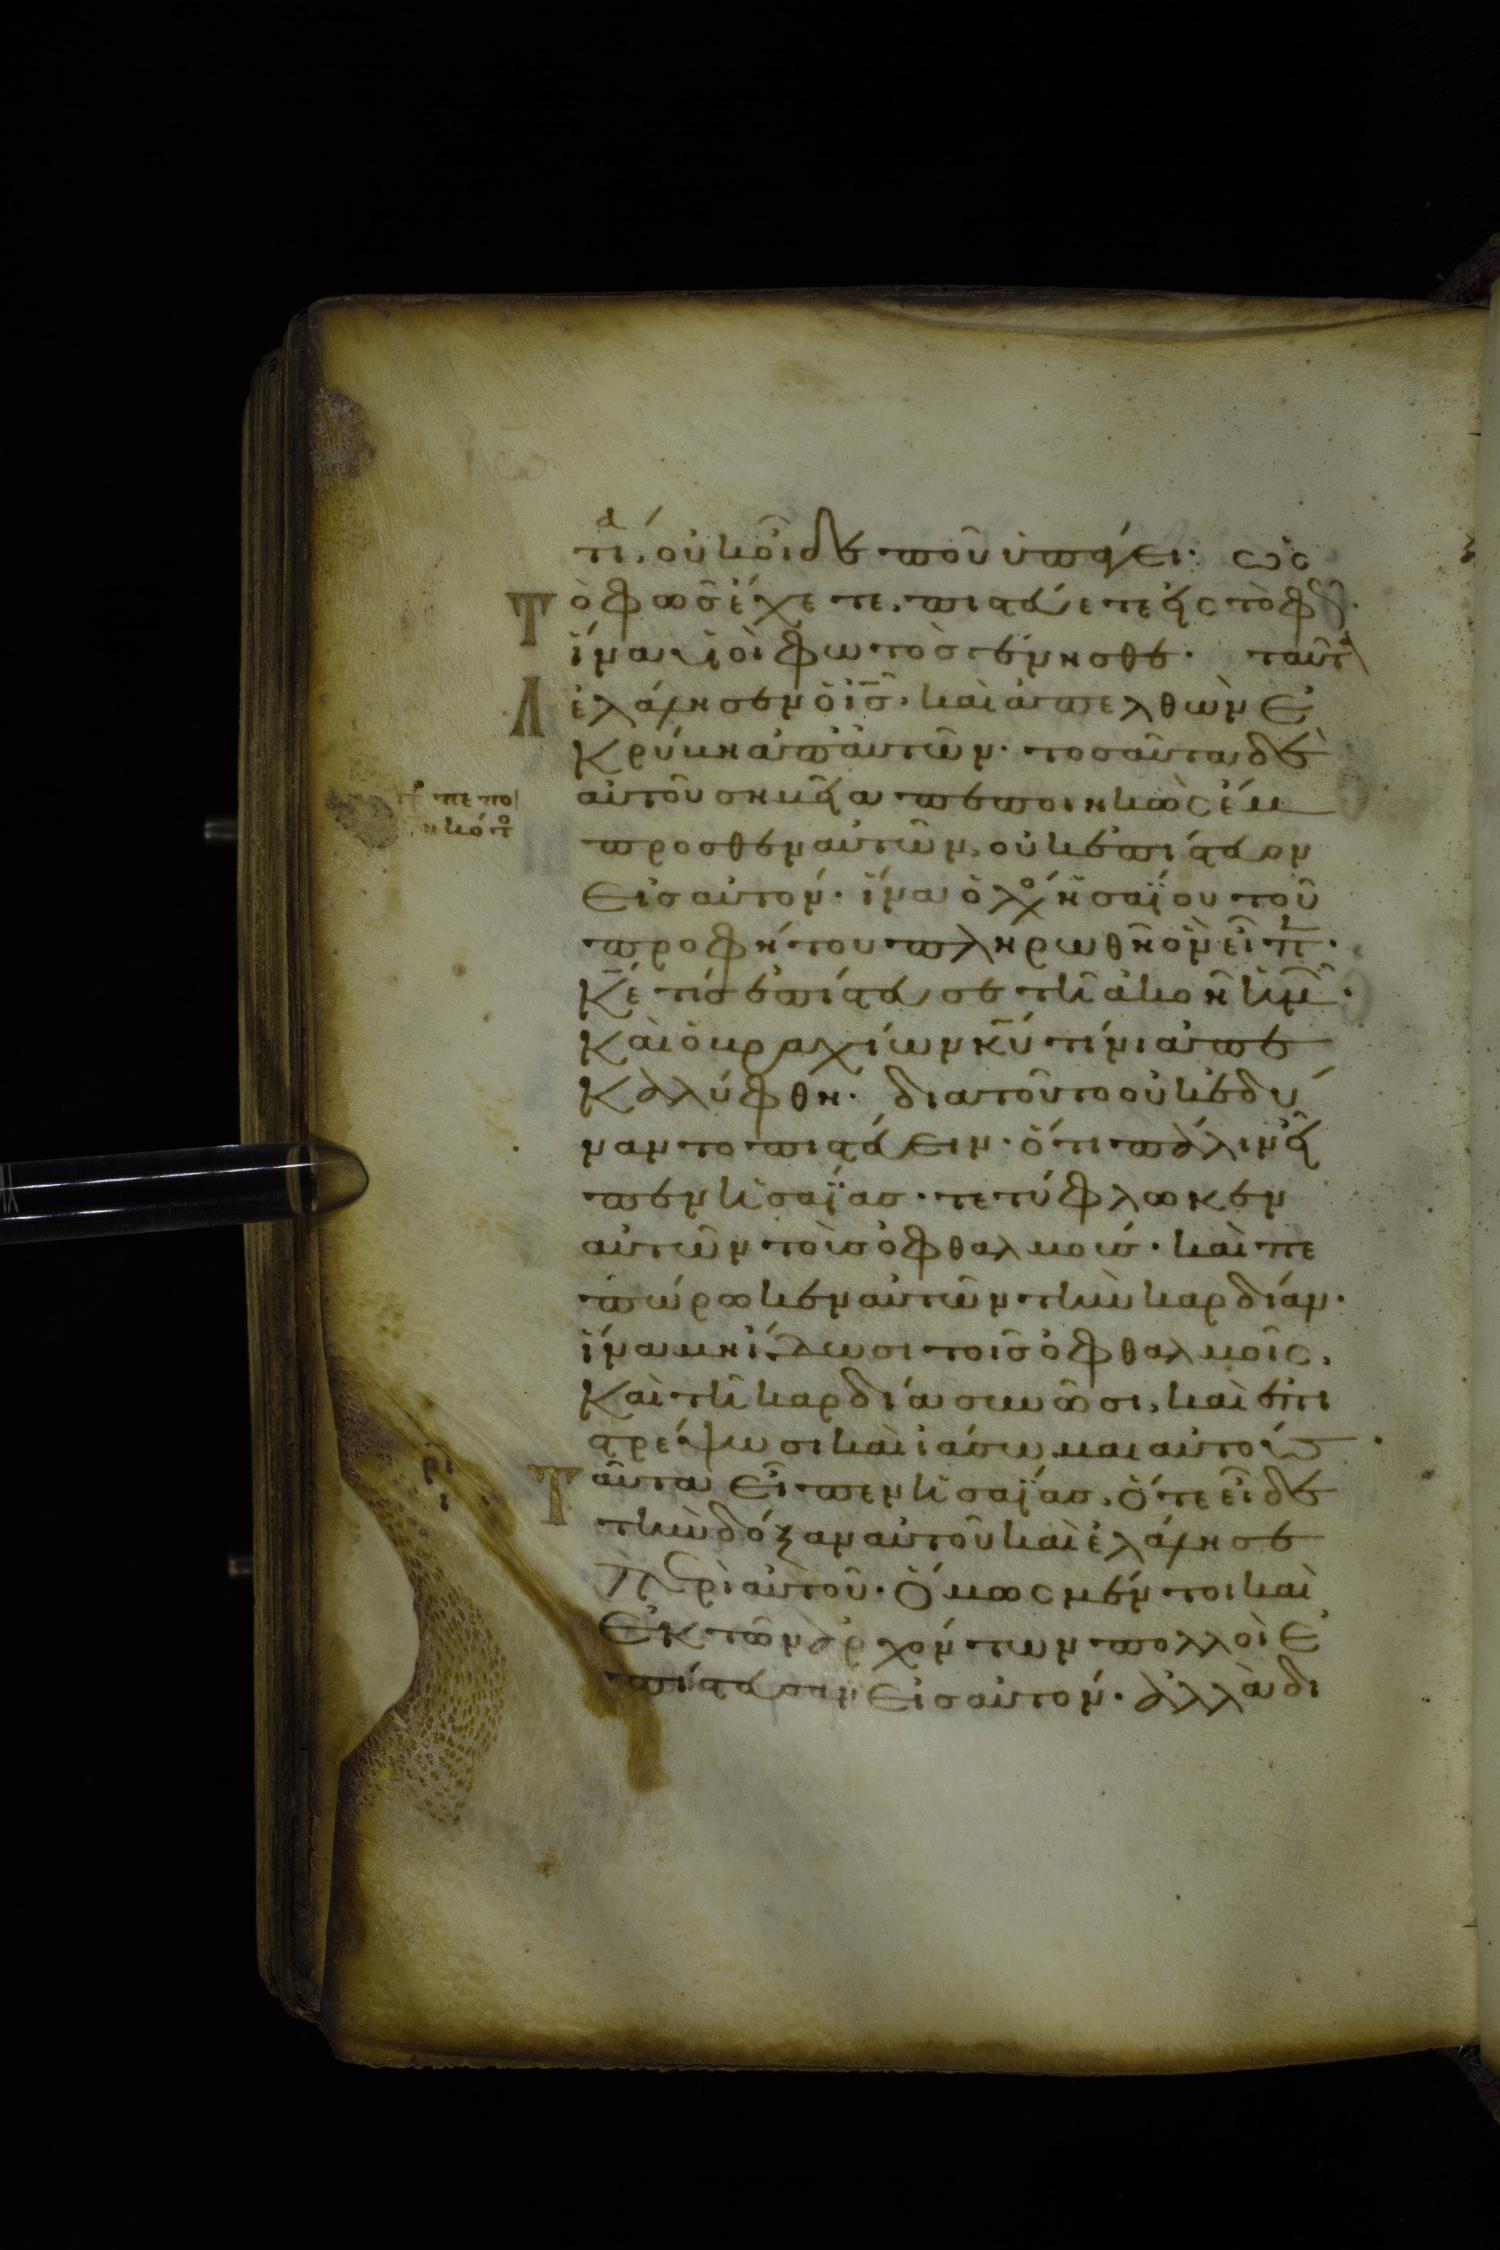 τία, οὐκ οἶδε ποῦ ὑπάγει· ὡς
Τὸ φῶς ἔχετε, πιστεύετε εἰς τὸ φῶς·
ἵνα υἱοὶ φωτὸς γένησθε· ταῦτα
Ἐλάλησεν ὁ ις̅, καὶ ἀπελθὼν ἐ
κρύβη ἀπ' αὐτῶν· τοσαῦτα δὲ
αὐτοῦ σημεῖα πεποιηκὼς ἔμ
προσθεν αὐτῶν, οὐκ ἐπίστευον
εἰς αὐτόν· ἵνα ὁ λόγος ἠσαΐου τοῦ
προφήτου πληρωθῆ ὃν εἶπεν·
κε̅ τίς ἐπίστευσε τῆ ἀκοῆ ἡμῶν·
καὶ ὁ βραχίων κυ̅ τίνι ἀπε
καλύφθη· διατοῦτο οὐκ ἐδύ
ναντο πιστεύειν· ὅτι πάλιν εἶ
πεν ἠσαΐας· τετύφλωκεν
αὐτῶν τοὺς ὀφθαλμούς· καὶ πε
πώρωκεν αὐτῶν τὴν καρδίαν·
ἵνα μὴ ἴδωσι τοῖς ὀφθαλμοῖς,
καὶ τῆ καρδία συνῶσι, καὶ ἐπι
στρέψωσι καὶ ἰάσωμαι αὐτούς·
Ταῦτα εἶπεν ἠσαΐας, ὅτε εἶδε
τὴν δόξαν αὐτοῦ καὶ ἐλάλησε
περὶ αὐτοῦ· ὅμως μέντοι καὶ
ἐκ τῶν ἀρχόντων πολλοὶ ἐ
πίστευσαν εἰς αὐτόν· ἀλλὰ δι